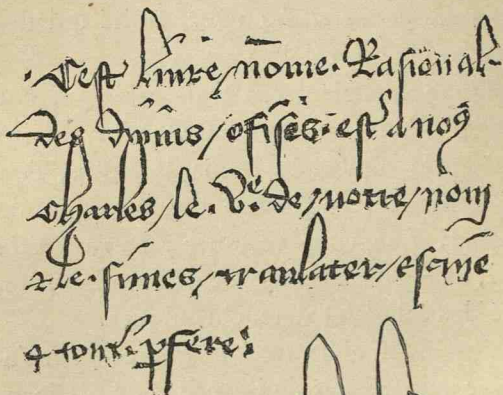 Cest liure nōme Rasional
des diuins ofises est a nos
Charles le Ve de notre nom
& le fimes tranlater escrire
& tout parfere